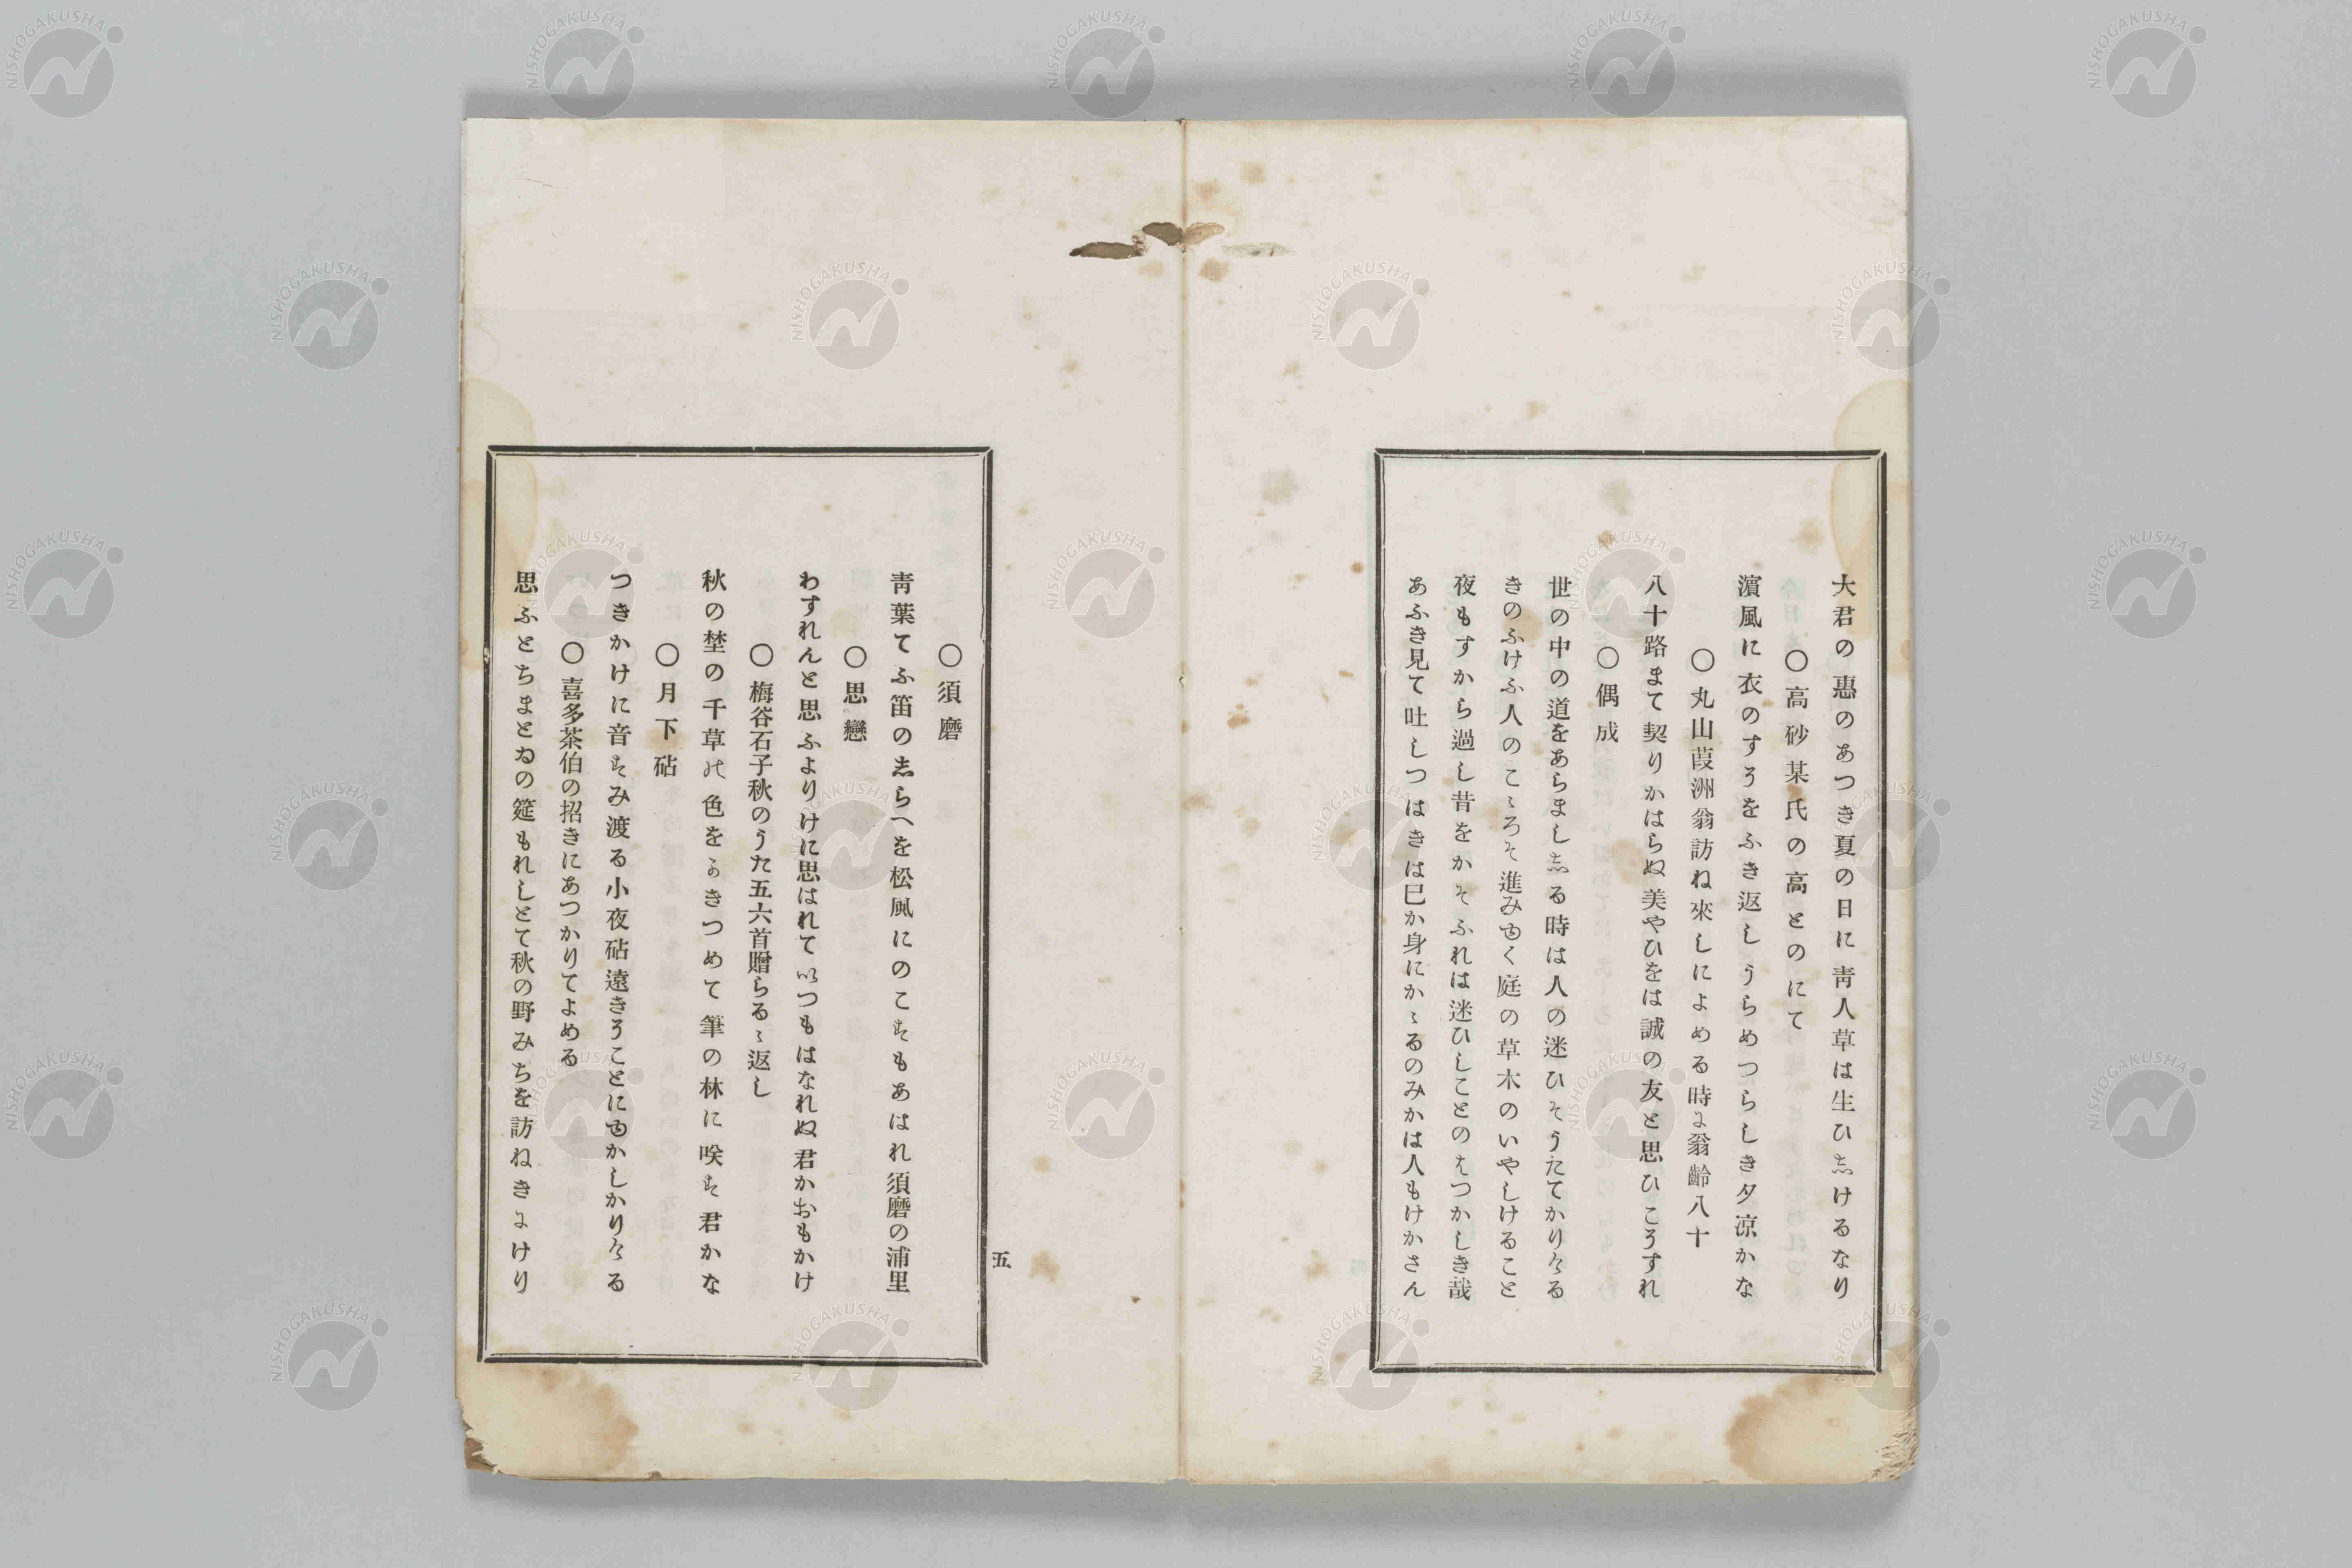 大君の惠のあつき夏の日に靑人草は生ひ志けるなり
〇高砂某氏の高とのにて
濵風に衣のすそをふき返しうらめつらしき夕凉かな
〇丸山葭洲翁訪ね來しによめる時に翁齡八十
八十路まて契りかはらぬ美やひをは誠の友と思ひこそすれ
〇偶成
世の中の道をあらまし志る時は人の迷ひそうたてかりける
きのふけふ人のこゝろそ進みゆく庭の草木のいやしけること
夜もすから過し昔をかそふれは迷ひしことのはつかしき哉
あふき見て吐しつはきは巳か身にかゝるのみかは人もけかさん
五
〇須磨
靑葉てふ笛の志らへを松風にのこすもあはれ須磨の浦里
〇思戀
わすれんと思ふよりけに思はれていつもはなれぬ君かおもかけ
〇梅谷石子秋のうた五六首贈らるゝ返し
秋の埜の千草の色をかきつめて筆の林に咲す君かな
〇月下砧
つきかけに音すみ渡る小夜砧遠きそことにゆかしかりける
〇喜多茶伯の招きにあつかりてよめる
思ふとちまとゐの筵もれしとて秋の野みちを訪ねきにけり
NISHOGAKUSHA